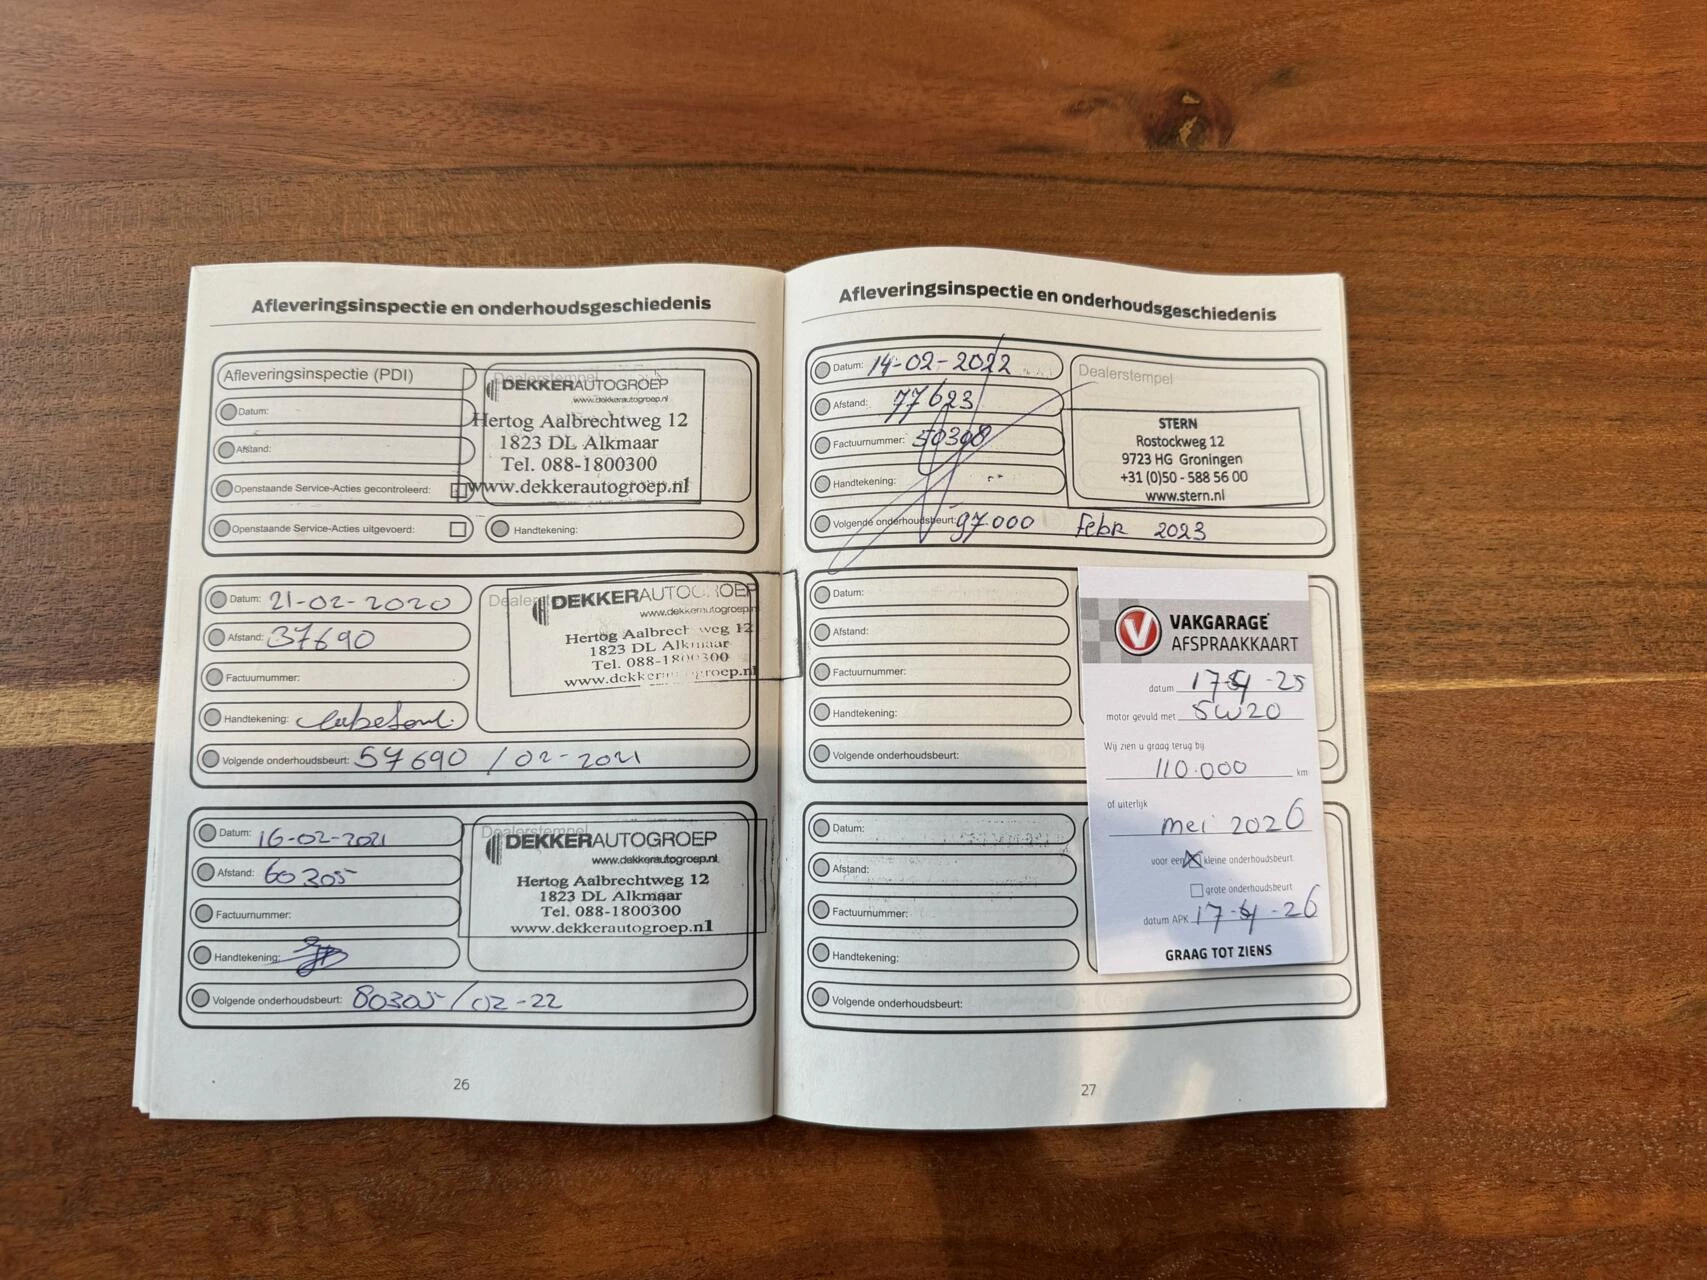 Afleveringsinspectie en onderhoudsgeschiedenis
Afleveringsinspectie (PDI)
Datum:
Afstand:
Openstaande Service-Acties gecontroleerd:
Openstaande Service-Acties uitgevoerd:
Dealerstempel
DEKKERAUTOGROEP
www.dekkerautogroep.nl
Hertog Aalbrechtweg 12
1823 DL Alkmaar
Tel. 088-1800300
www.dekkerautogroep.nl
Handtekening:
Datum: 21-02-2020
Afstand: 37690
Factuurnummer:
Handtekening:
Volgende onderhoudsbeurt: 57690 / 02-2021
DEKKERAUTOGROEP
www.dekkerautogroep.nl
Hertog Aalbrechtweg 12
1823 DL Alkmaar
Tel. 088-1800300
www.dekkerautogroep.nl
Datum: 16-02-2021
Afstand: 60305
Factuurnummer:
Handtekening:
Volgende onderhoudsbeurt: 80305/02-22
Dealerstempel
DEKKERAUTOGROEP
www.dekkerautogroep.nl
Hertog Aalbrechtweg 12
1823 DL Alkmaar
Tel. 088-1800300
www.dekkerautogroep.nl
26
Afleveringsinspectie en onderhoudsgeschiedenis
Datum: 14-02-2022
Afstand: 77623
Factuurnummer:
Handtekening:
Volgende onderhoudsbeurt: 97.000 Febr 2023
Dealerstempel
STERN
Rostockweg 12
9723 HG Groningen
+31 (0)50 - 588 56 00
www.stern.nl
Datum:
Afstand:
Factuurnummer:
Handtekening:
Volgende onderhoudsbeurt:
Datum:
Afstand:
Factuurnummer:
Handtekening:
Volgende onderhoudsbeurt:
VAKGARAGE
AFSPRAAKKAART
datum
motor gevuld met 5W20
Wij zien u graag terug bij
110.000 km
of uiterlijk
mei 2026
voor een kleine onderhoudsbeurt
grote onderhoudsbeurt
datum APK
GRAAG TOT ZIENS
27